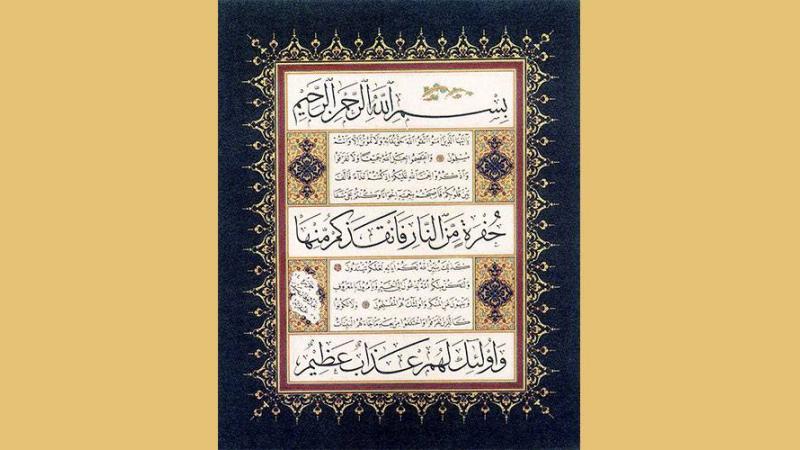 بِسْمِ اللهِ الرَّحْمٰنِ الرَّحِيمِ
يَا أَيُّهَا الَّذِينَ آمَنُوا اتَّقُوا اللهَ حَقَّ تُقَاتِهِ وَلَا تَمُوتُنَّ إِلَّا وَأَنْتُمْ
مُسْلِمُونَ وَاعْتَصِمُوا بِحَبْلِ اللهِ جَمِيعًا وَلَا تَفَرَّقُوا
وَاذْكُرُوا نِعْمَةَ اللهِ عَلَيْكُمْ إِذْ كُنْتُمْ أَعْدَاءً فَأَلَّفَ
بَيْنَ قُلُوبِكُمْ فَأَصْبَحْتُمْ بِنِعْمَتِهِ إِخْوَانًا وَكُنْتُمْ عَلَى شَفَا
حُفْرَةٍ مِنَ النَّارِ فَأَنْقَذَكُمْ مِنْهَا
كَذَلِكَ يُبَيِّنُ اللهُ لَكُمْ آيَاتِهِ لَعَلَّكُمْ تَهْتَدُونَ
وَلْتَكُنْ مِنْكُمْ أُمَّةٌ يَدْعُونَ إِلَى الْخَيْرِ وَيَأْمُرُونَ بِالْمَعْرُوفِ
وَيَنْهَوْنَ عَنِ الْمُنْكَرِ وَأُولَئِكَ هُمُ الْمُفْلِحُونَ وَلَا تَكُونُوا
كَالَّذِينَ تَفَرَّقُوا وَاخْتَلَفُوا مِنْ بَعْدِ مَا جَاءَهُمُ الْبَيِّنَاتُ
وَأُولَئِكَ لَهُمْ عَذَابٌ عَظِيمٌ